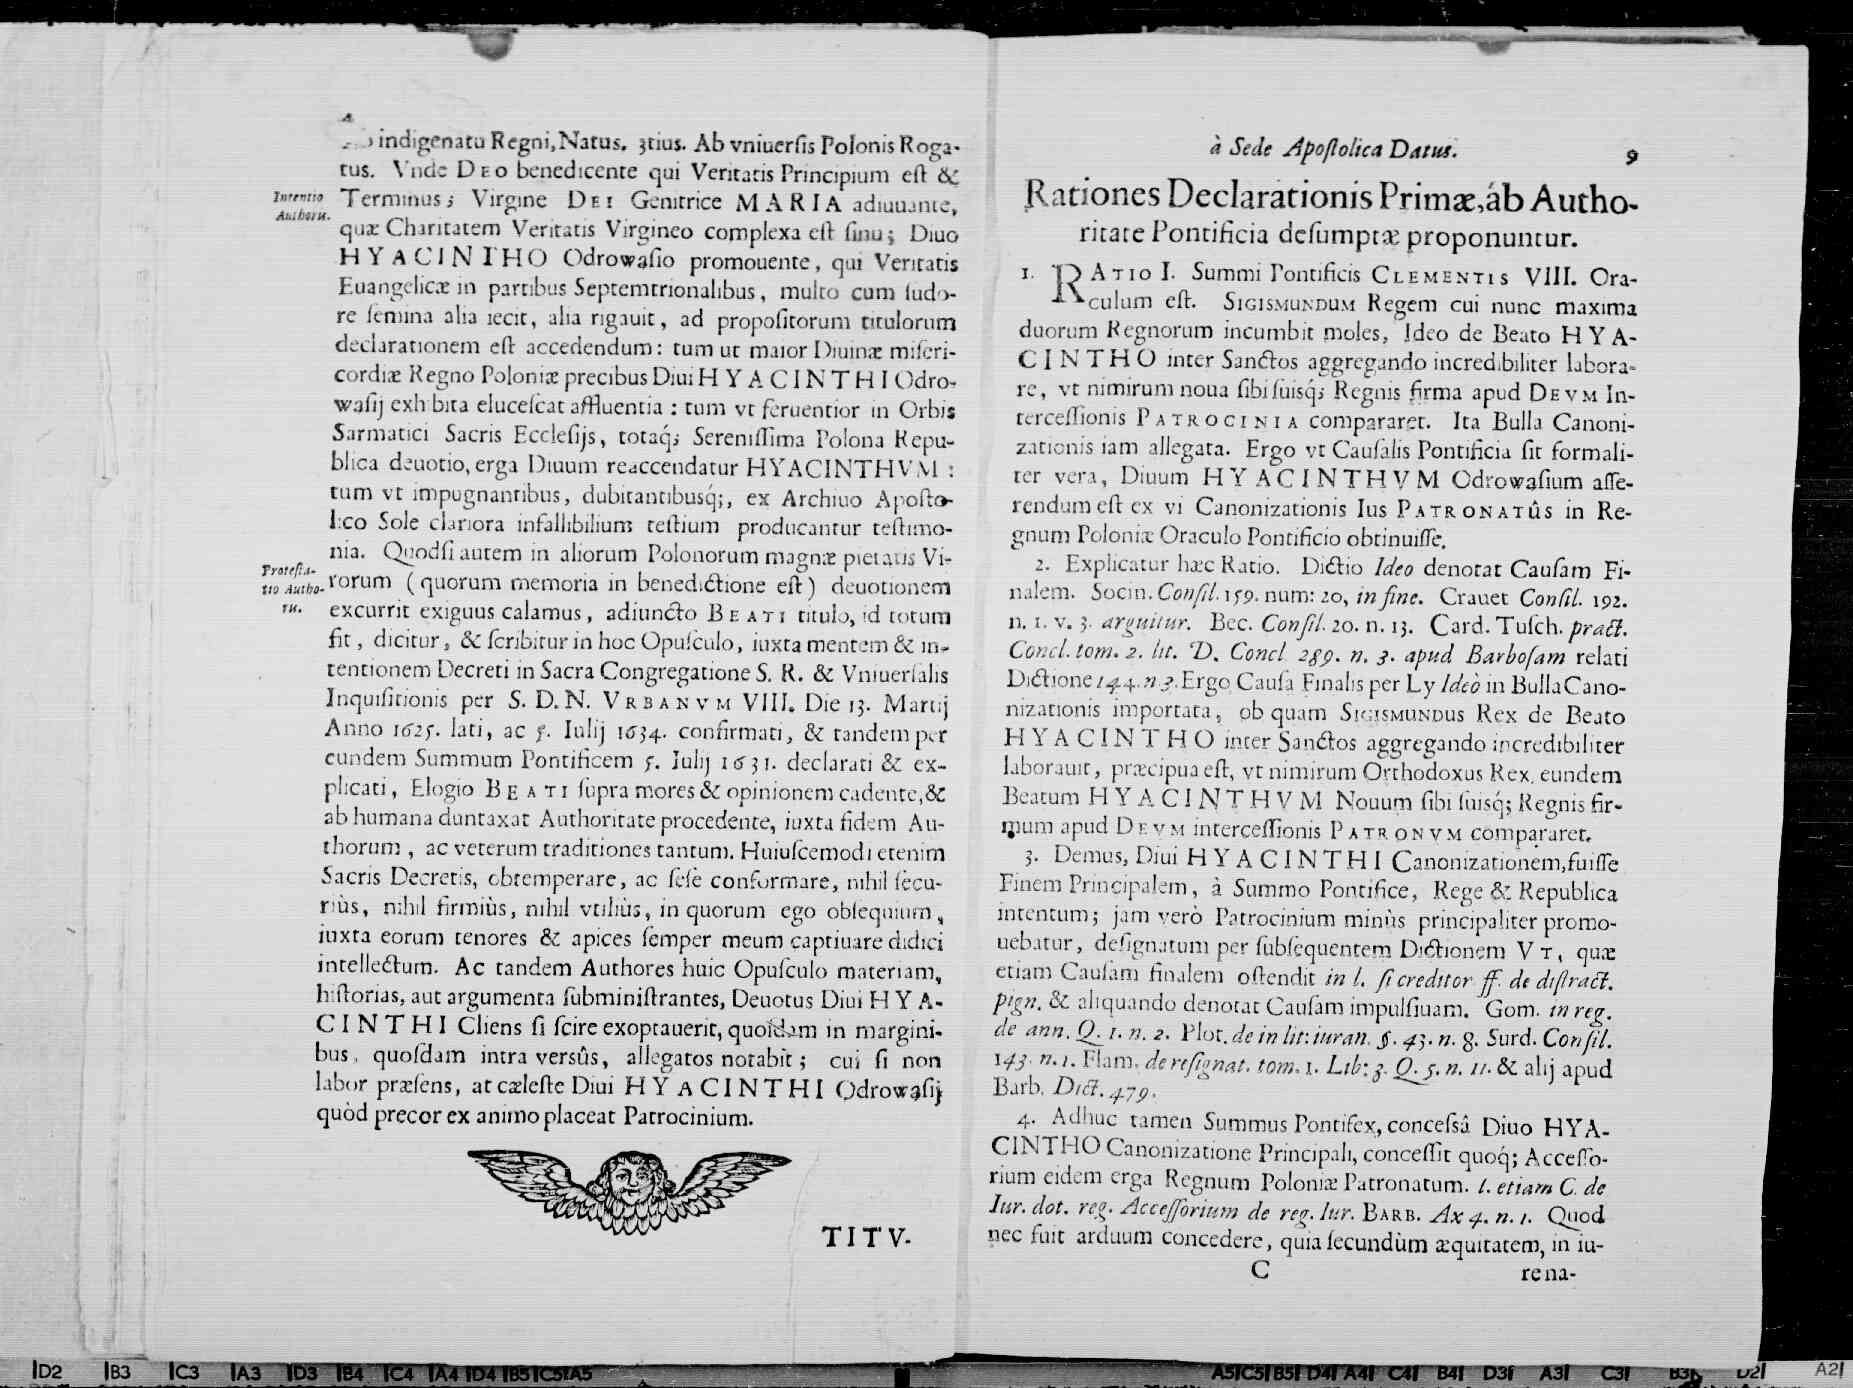 indigenatu Regni, Natus. 3tius. Ab vniuerſis Polonis Roga-
tus. Vnde DEO benedicente qui Veritatis Principium eſt &
Intentio
Authoru.
Terminus; Virgine DEI Genitrice MARIA adiuuante,
quæ Charitatem Veritatis Virgineo complexa eſt ſinu; Diuo
HYACINTHO Odrowaſio promouente, qui Veritatis
Euangelicæ in partibus Septemtrionalibus, multo cum ſudo-
re ſemina alia iecit, alia rigauit, ad propoſitorum titulorum
declarationem eſt accedendum: tum ut maior Diuinæ miſeri-
cordiæ Regno Poloniæ precibus Diui HYACINTHI Odro-
waſij exhibita eluceſcat affluentia: tum vt feruentior in Orbis
Sarmatici Sacris Eccleſijs, totaq́; Sereniſſima Polona Repu-
blica deuotio, erga Diuum reaccendatur HYACINTHVM:
tum vt impugnantibus, dubitantibusq́;, ex Archiuo Apoſto-
lico Sole clariora infallibilium teſtium producantur teſtimo-
nia. Quodſi autem in aliorum Polonorum magnæ pietatis Vi-
Proteſta-
tio Autho-
ru.
rorum (quorum memoria in benedictione eſt) deuotionem
excurrit exiguus calamus, adiuncto BEATI titulo, id totum
fit, dicitur, & ſcribitur in hoc Opuſculo, iuxta mentem & in-
tentionem Decreti in Sacra Congregatione S. R. & Vniuerſalis
Inquiſitionis per S. D. N. VRBANVM VIII. Die 13. Martij
Anno 1625. lati, ac 5. Iulij 1634. confirmati, & tandem per
eundem Summum Pontificem 5. Iulij 1631. declarati & ex-
plicati, Elogio BEATI ſupra mores & opinionem cadente, &
ab humana duntaxat Authoritate procedente, iuxta fidem Au-
thorum, ac veterum traditiones tantum. Huiuſcemodi etenim
Sacris Decretis, obtemperare, ac ſeſè conformare, nihil ſecu-
riùs, nihil firmiùs, nihil vtiliùs, in quorum ego obſequium,
iuxta eorum tenores & apices ſemper meum captiuare didici
intellectum. Ac tandem Authores huic Opuſculo materiam,
hiſtorias, aut argumenta ſubminiſtrantes, Deuotus Diui HYA-
CINTHI Cliens ſi ſcire exoptauerit, quoſdam in margini-
bus, quoſdam intra versûs, allegatos notabit; cui ſi non
labor præſens, at cæleſte Diui HYACINTHI Odrowaſij
quòd precor ex animo placeat Patrocinium.
TITV-
à Sede Apoſtolica Datus.
9
Rationes Declarationis Primæ, áb Autho-
ritate Pontificia deſumptæ proponuntur.
1. RATIO I. Summi Pontificis CLEMENTIS VIII. Ora-
culum eſt. SIGISMUNDUM Regem cui nunc maxima
duorum Regnorum incumbit moles, Ideo de Beato HYA-
CINTHO inter Sanctos aggregando incredibiliter labora-
re, vt nimirum noua ſibi ſuisq́; Regnis firma apud DEVM In-
terceſſionis PATROCINIA compararet. Ita Bulla Canoni-
zationis iam allegata. Ergo vt Cauſalis Pontificia ſit formali-
ter vera, Diuum HYACINTHVM Odrowaſium aſſe-
rendum eſt ex vi Canonizationis Ius PATRONATÛS in Re-
gnum Poloniæ Oraculo Pontificio obtinuiſſe.
2. Explicatur hæc Ratio. Dictio Ideo denotat Cauſam Fi-
nalem. Socin. Conſil. 159. num: 20, in fine. Crauet Conſil. 192.
n. 1. v. 3. arguitur. Bec. Conſil. 20. n. 13. Card. Tuſch. pract.
Concl. tom. 2. lit. D. Concl. 289. n. 3. apud Barboſam relati
Dictione 144. n 3. Ergo Cauſa Finalis per Ly Ideò in Bulla Cano-
nizationis importata, ob quam SIGISMUNDUS Rex de Beato
HYACINTHO inter Sanctos aggregando incredibiliter
laborauit, præcipua eſt, vt nimirum Orthodoxus Rex, eundem
Beatum HYACINTHVM Nouum ſibi ſuisq́; Regnis fir-
mum apud DEVM interceſſionis PATRONVM compararet.
3. Demus, Diui HYACINTHI Canonizationem, fuiſſe
Finem Principalem, à Summo Pontifice, Rege & Republica
intentum; jam verò Patrocinium minùs principaliter promo-
uebatur, deſignatum per ſubſequentem Dictionem VT, quæ
etiam Cauſam finalem oſtendit in l. ſi creditor ff. de diſtract.
pign. & aliquando denotat Cauſam impulſiuam. Gom. in reg.
de ann. Q. 1. n. 2. Plot. de in lit: iuran. §. 43. n. 8. Surd. Conſil.
143. n. 1. Flam. de reſignat. tom. 1. Lib: 3. Q. 5. n. 11. & alij apud
Barb. Dict. 479.
4. Adhuc tamen Summus Pontifex, conceſsâ Diuo HYA-
CINTHO Canonizatione Principali, conceſſit quoq́; Acceſſo-
rium eidem erga Regnum Poloniæ Patronatum. l. etiam C. de
Iur. dot. reg. Acceſſorium de reg. Iur. BARB. Ax 4. n. 1. Quod
nec fuit arduum concedere, quia ſecundùm æquitatem, in iu-
C
re na-
D2 B3 C3 A3 D3 B4 C4 A4 D4 B5 C5 A5
A5 C5 B5 D4 A4 C4 B4 D3 A3 C3 B3 D2 A2